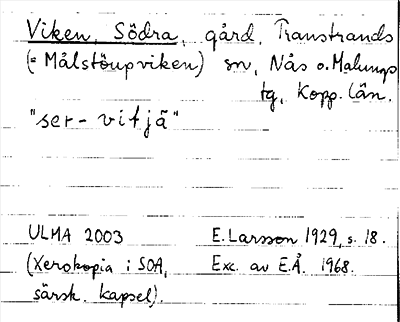 Viken, Södra, gård, Transtrands
(= Målstöupviken) sn, Nås o. Malungs
tg, Kopp. län.
"ser-vitjä"
ULMA 2003 E. Larsson 1929, s. 18.
(Xerokopia i SOA, Exc. av E.Å. 1968.
särsk. kapsel).